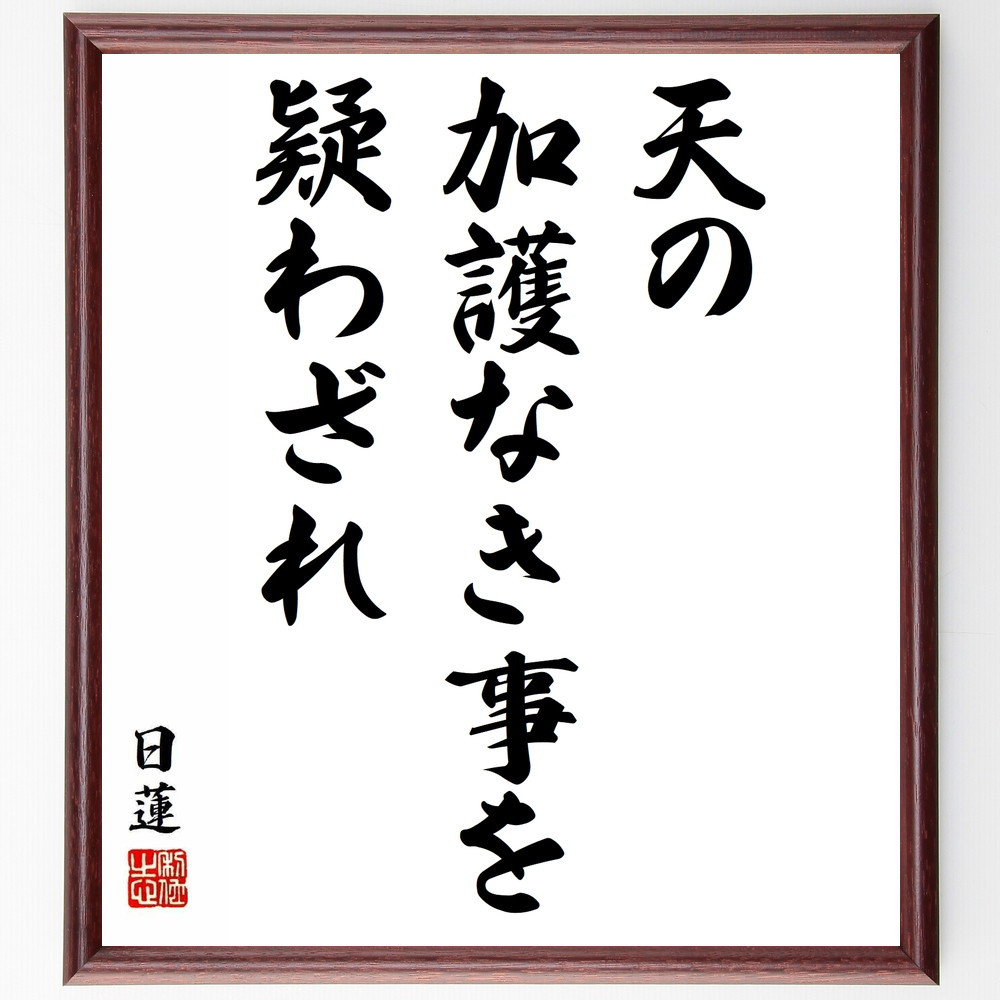 天の
加護なき事を
疑わざれ
日蓮